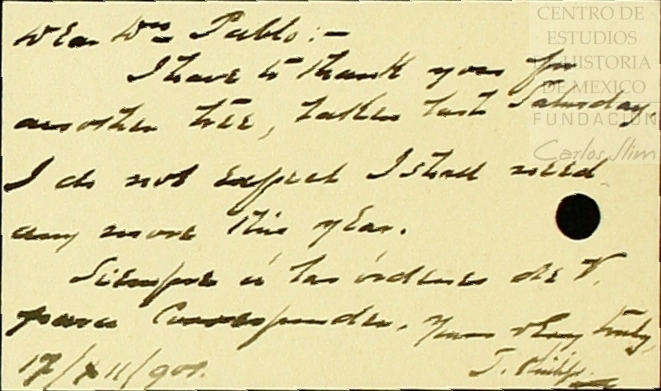 Dear Dn Pablo:-
I have to thank you for
another tree, taken last Saturday.
I do not expect I shall need
any more this year.
Siempre á las órdenes de V.
para corresponder. Yours very truly,
17/XII/901. J. Phillips
CENTRO DE
ESTUDIOS
DE HISTORIA
DE MEXICO
FUNDACIÓN
Carlos Slim